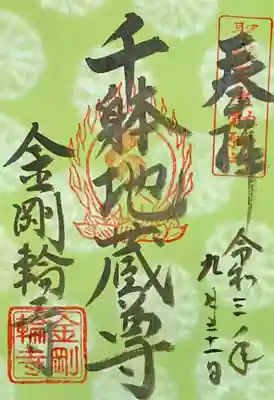 奉拝
令和三年
九月二十一日
千躰地蔵尊
金剛輪寺
金剛
輪寺